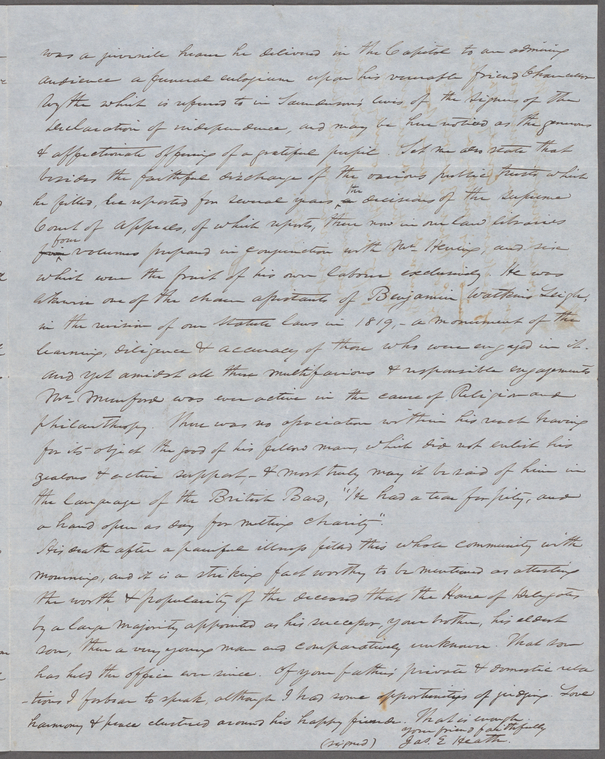 was a juvenile he delivered in the Capitol to an admiring
audience a funeral eulogium upon his venerable friend Chancellor
Wythe which is referred to in Sanderson's lives of the Signers of the
Declaration of independence, and may be here noticed as the generous
& affectionate offering of a grateful pupil. Let me also state that
besides the faithful discharge of the various public trusts, which
he filled, he reported for several years, the decisions of the Supreme
Court of Appeals, of which reports, there now in our law libraries
four volumes prepared in conjunction with Mr. Hening, and six
which were the fruit of his own labour exclusively. He was
likewise one of the chosen assistants of Benjamin Watkins Leigh,
in the revision of our Statute laws in 1819, - a monument of the
learning, diligence & accuracy of those who were engaged in it.
And yet amidst all these multifarious & responsible engagements
Mr. Munford was ever active in the cause of Religion and
philanthropy. There was no association within his reach having
for its object the good of his fellow man, which did not enlist his
zealous & active support, & most truly may it be said of him in
the language of the British Bard, "He had a tear for pity, and
a hand open as day for melting charity".
His death after a painful illness filled this whole community with
mourning, and it is a striking fact worthy to be mentioned as attesting
the worth & popularity of the deceased that the House of Delegates
by a large majority appointed as his successor, your brother, his eldest
son, then a very young man and comparatively unknown. That son
has held the office ever since. Of your father's private & domestic rela
-tions I forbear to speak, although I had some opportunities of judging. Love
harmony & peace clustered around his happy fireside. That is enough.
Your friend faithfully
(signed) Jas. E Heath.